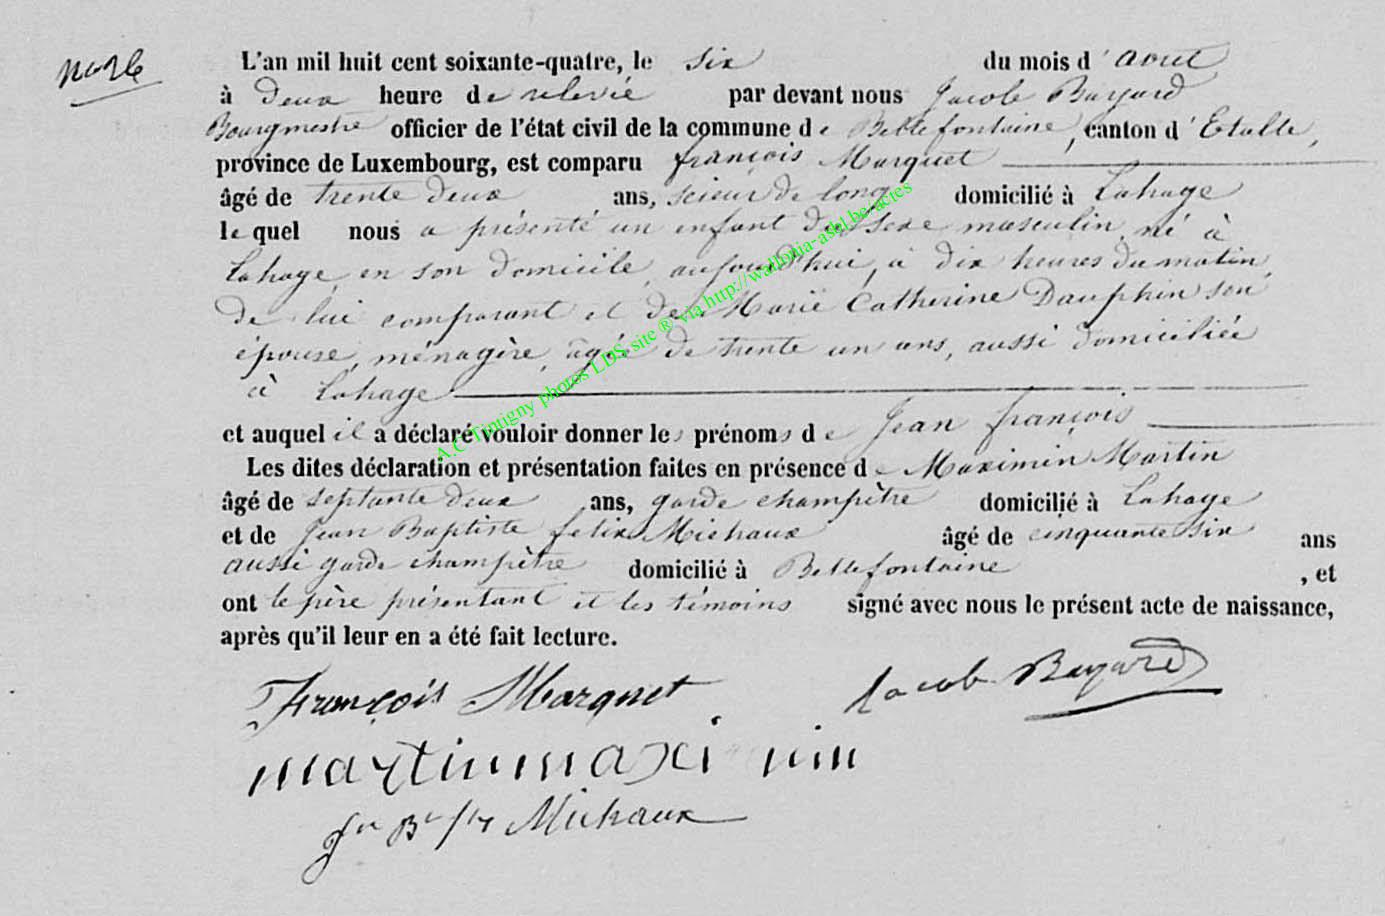 N° 26
L'an mil huit cent soixante-quatre, le six du mois d'aout
à deux heure de relevée par devant nous Jacob Bayard
Bourgmestre officier de l'état civil de la commune de Bellefontaine, canton d'Etalle,
province de Luxembourg, est comparu françois Marquet
âgé de trente deux ans, scieur de long domicilié à Lahage
lequel nous a présenté un enfant du sexe masculin né à
Lahage, en son domicile, aujourd'hui, à dix heures du matin,
de lui comparant et de Marie Catherine Dauphin son
épouse, ménagère, âgée de trente un ans, aussi domiciliée
à Lahage
et auquel il a déclaré vouloir donner les prénoms de Jean françois
Les dites déclaration et présentation faites en présence de Maximin Martin
âgé de septante deux ans, garde champêtre domicilié à Lahage
et de Jean Baptiste felix Michaux âgé de cinquante six ans
aussi garde champêtre domicilié à Bellefontaine, et
ont le père présentant et les témoins signé avec nous le présent acte de naissance,
après qu'il leur en a été fait lecture.
François Marquet Jacob Bayard
martin maxi min
Jn Bte Michaux
A.C Tintigny photos LDS site ® via http://wallonia-asbl.be/actes